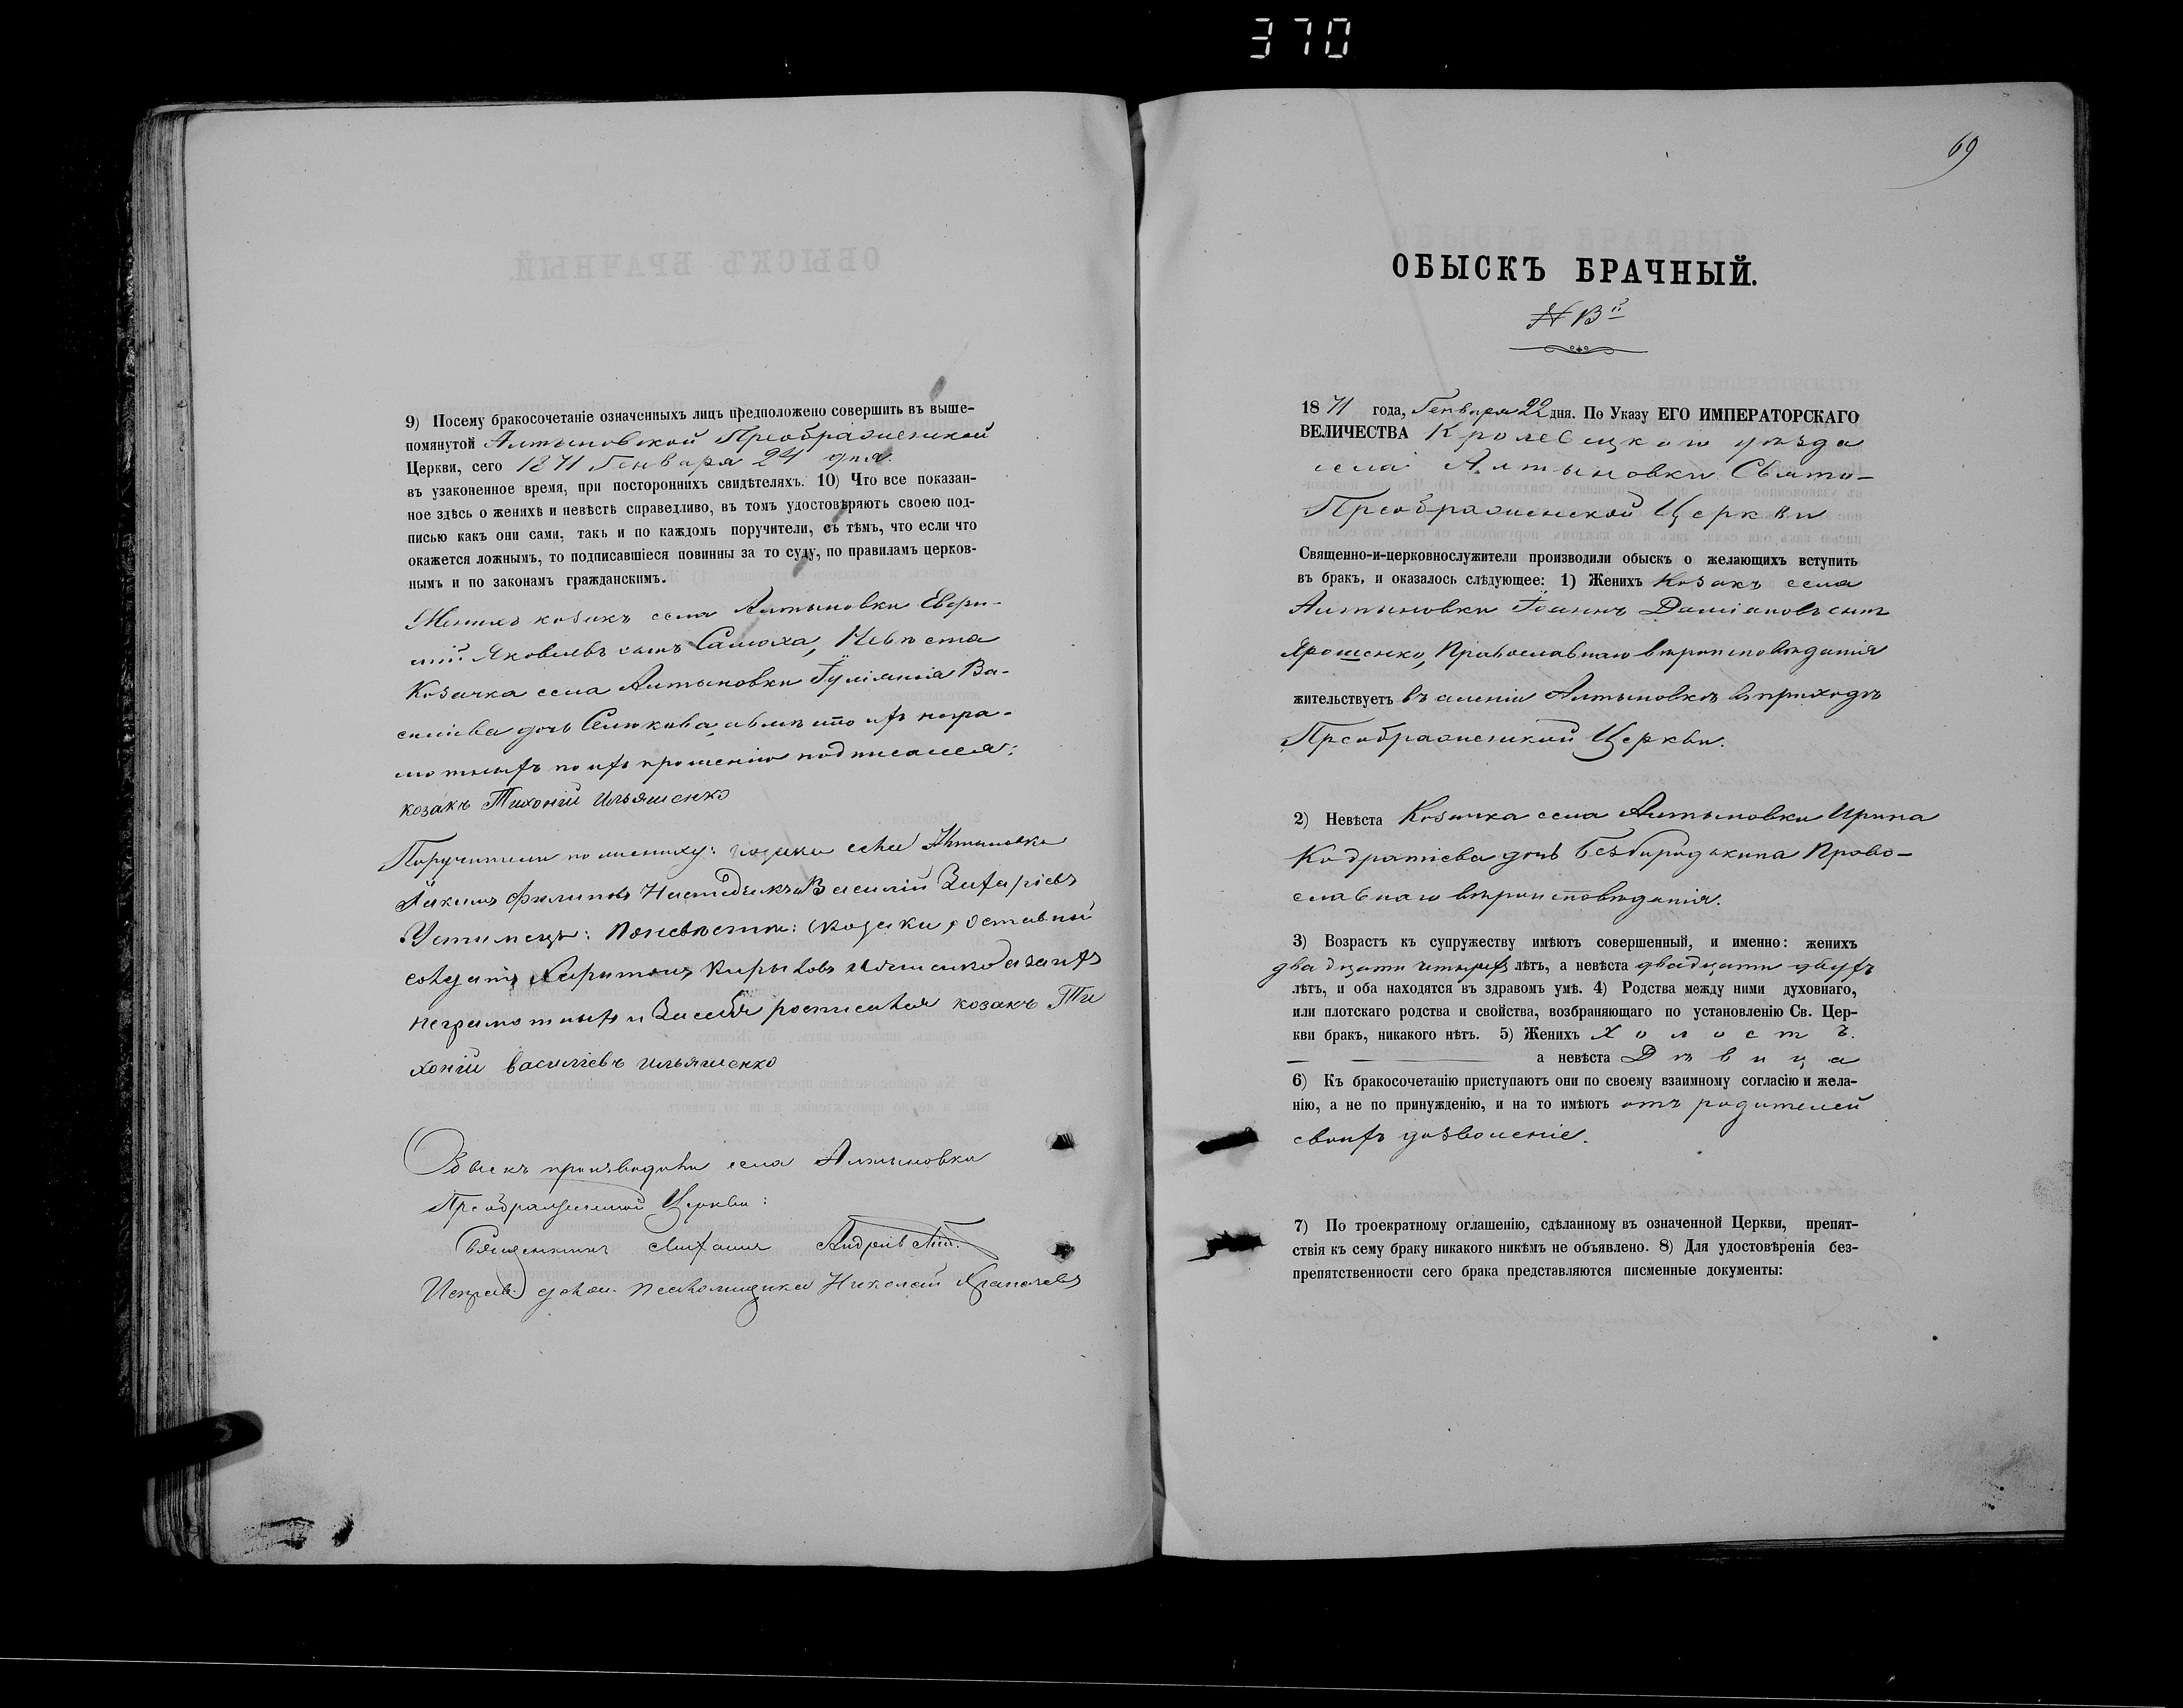 370
9) Посему бракосочетаніе означенныхъ лицъ предположено совершить въ выше-
помянутой Алтыновской Преображенской
Церкви, сего 1871 Генваря 24 дня.
въ узаконенное время, при постороннихъ свидѣтеляхъ. 10) Что все показан-
ное здѣсь о женихѣ и невѣстѣ справедливо, въ томъ удостовѣряютъ своею под-
писью какъ они сами, такъ и по каждомъ поручители, съ тѣмъ, что если что
окажется ложнымъ, то подписавшіеся повинны за то суду, по правиламъ церков-
нымъ и по законамъ гражданскимъ.
Женихъ козакъ села Алтыновки
Яковлевъ сынъ Самоха, Невѣста
Козачка села Алтыновки Іуліанія Ва-
силіева дочь Селюкова, а вмѣсто ихъ негра-
мотныхъ по ихъ прошенію подписался:
козакъ Тихоній Ильяшенко
Поручители по жениху: козаки села Алтыновки
Филиповъ Василій Захаріевъ
Устимецъ: По невѣстѣ: козаки отставный
солдатъ Харитонъ Кириловъ а за ихъ
неграмотныхъ и За себя росписался козакъ Ти
хоній василіевъ ильяшенко
Обыскъ производили села Алтыновки
Преображенской Церкви:
Священникъ Михаилъ
Исправ. долж. псаломщика Николай
69
ОБЫСКЪ БРАЧНЫЙ.
№ 3й
1871 года, Генваря 22 дня. По Указу ЕГО ИМПЕРАТОРСКАГО
ВЕЛИЧЕСТВА Кролевецкого уѣзда
села Алтыновки Свято-
Преображенской Церкви
Священно-и-церковнослужители производили обыскъ о желающихъ вступить
въ бракъ, и оказалось слѣдующее: 1) Женихъ Козакъ села
Алтыновки Іоаннъ Даміановъ сынъ
Ярошенко, Православнаго вѣроисповѣданія
жительствуетъ въ селеніи Алтыновкѣ въ приходѣ
Преображенской Церкви.
2) Невѣста Козачка села Алтыновки Ирина
Кодратіева дочь Безбородькина Право-
славнаго вѣроисповѣданія.
3) Возрастъ къ супружеству имѣютъ совершенный, и именно: женихъ
двадцати четырехъ лѣтъ, а невѣста двадцати двухъ
лѣтъ, и оба находятся въ здравомъ умѣ. 4) Родства между ними духовнаго,
или плотскаго родства и свойства, возбраняющаго по установленію Св. Цер-
кви бракъ, никакого нѣтъ. 5) Женихъ Холостъ.
а невѣста Дѣвица
6) Къ бракосочетанію приступаютъ они по своему взаимному согласію и жела-
нію, а не по принужденію, и на то имѣютъ отъ родителей
своихъ дозволеніе.
7) По троекратному оглашенію, сдѣланному въ означенной Церкви, препят-
ствія къ сему браку никакого никѣмъ не объявлено. 8) Для удостовѣренія без-
препятственности сего брака представляются писменные документы: